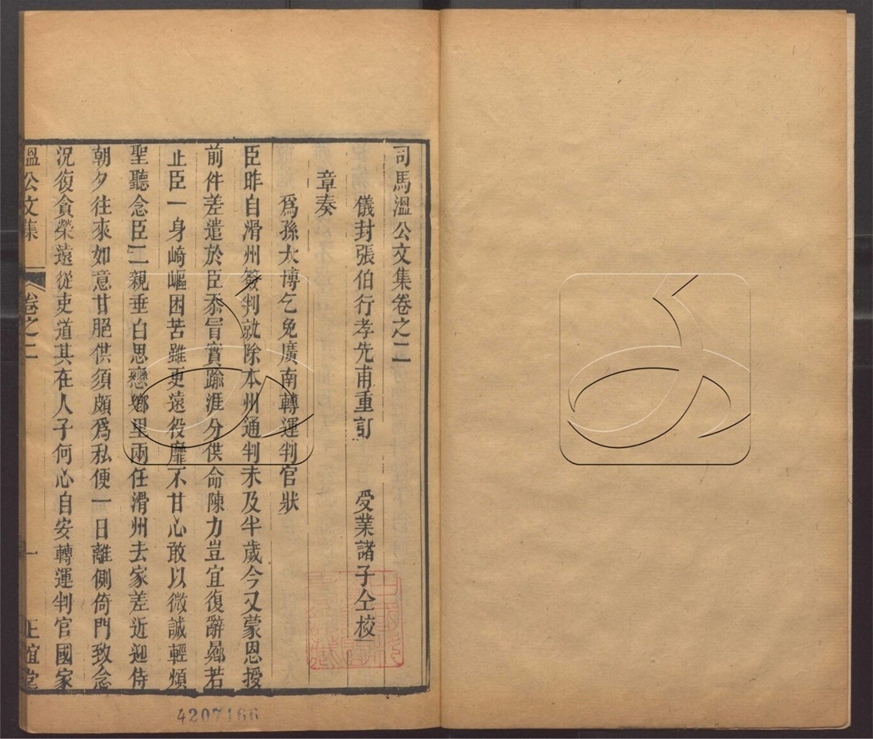 司馬溫公文集卷之二
儀封張伯行孝先甫重訂 受業諸子仝校
章奏
爲孫太博乞免廣南轉運判官狀
臣昨自滑州簽判就除本州通判未及半歲今又蒙恩授
前件差遣於臣忝冒實踰涯分供命陳力豈宜復辭舜若
止臣一身崎嶇困苦雖更遠役靡不甘心敢以微誠輕煩
聖聽念臣二親垂白思戀鄉里兩任滑州去家差近迎侍
朝夕往來如意甘脆供須頗爲私便一日離側倚門致念
況復貪榮遠從吏道其在人子何心自安轉運判官國家
溫公文集 卷之二 一 正誼堂
4207166